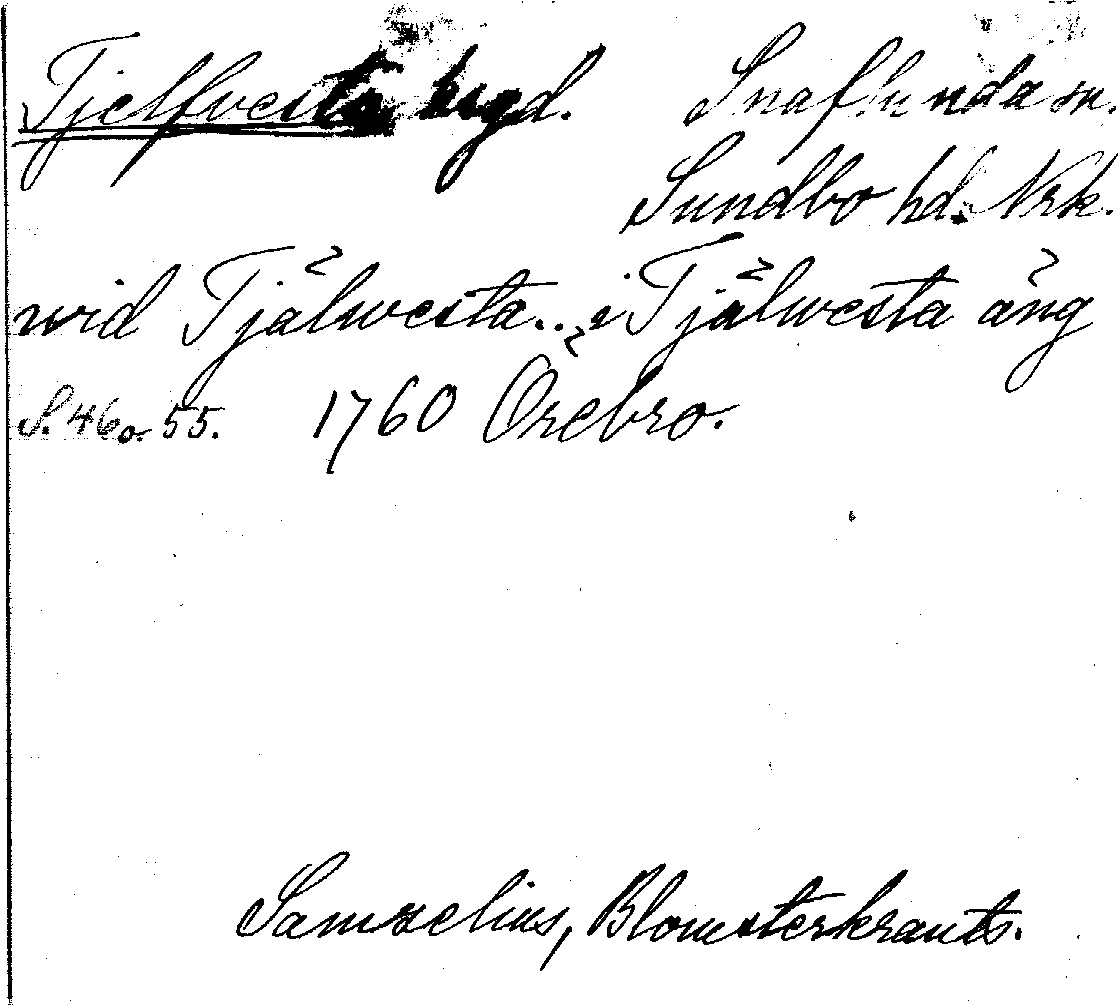 Tjelfvesta hrgd. Snaflunda sn.
Sundbo hd. Nrk.
wid Tjälwesta.. i Tjälwesta äng
S. 46 o. 55. 1760 Örebro.
Samzelius, Blomsterkrants.